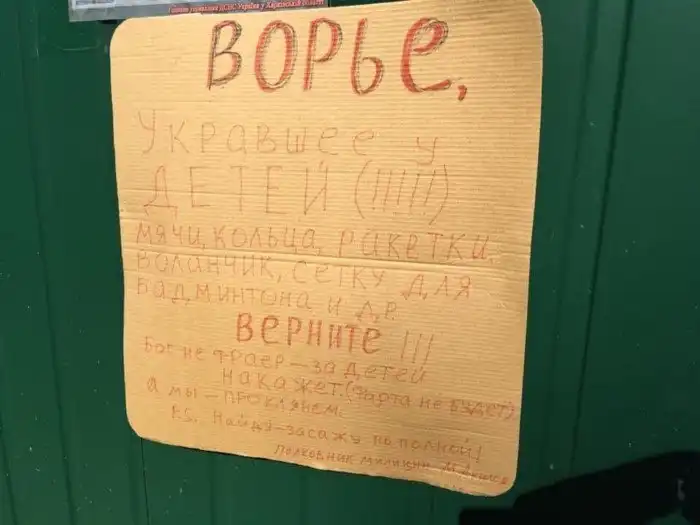 Головне управління ДСНС України у Харківській області
ВОРЬЕ,
Укравшее у
ДЕТЕЙ (!!!!!!)
мячи, кольца, ракетки.
воланчик, сетку для
бадминтона и др.
ВЕРНИТЕ !!!
Бог не фраер – за детей
накажет. (Фарта не будет)
а мы – проклянем.
P.S. Найду – засажу по полной!
Полковник милиции